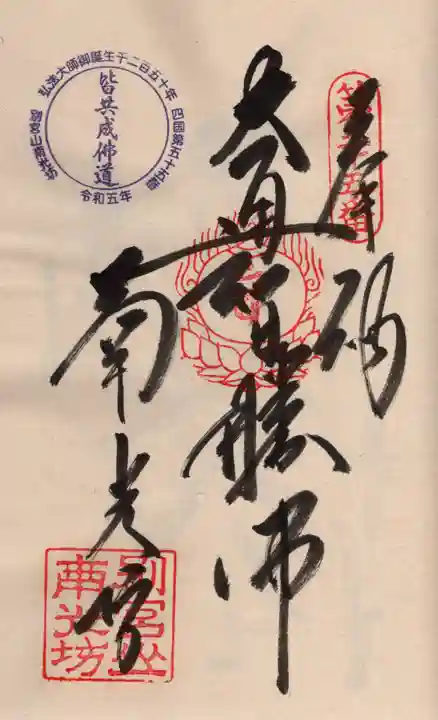 奉納
第五十五番
大通智勝佛
南光坊
別宮山
南光坊
弘法大師御誕生千二百五十年
四國第五十五番
別宮山南光坊
皆共成佛道
令和五年